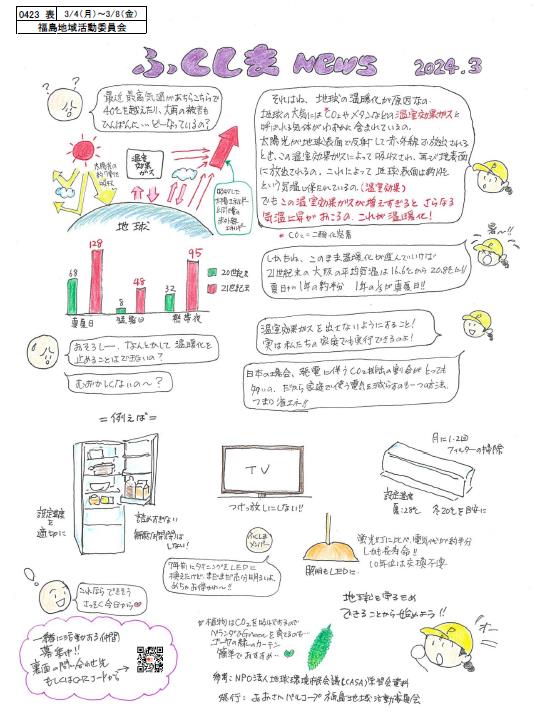 0423 表 3/4(月)～3/8(金)
福島地域活動委員会
ふくしま NEWS 2024.3
最近 最高気温があちらこちらで
40℃を越えたり、大雨の被害も
ひんぱんに…どーなっているの?
それはね、地球の温暖化が原因なの
地球の大気にはCO₂やメタンなどの温室効果ガスと
呼ばれる気体がわずかに含まれているの。
太陽光が地球表面で反射して赤外線で放出される
とき、この温室効果ガスによって吸収され、再び地表面
に放出されるの。これによって地球表面は約14℃
という気温に保たれているの。(温室効果)
でもこの温室効果ガスが増えすぎると さらなる
気温上昇がおこるの。これが温暖化!
* CO₂=二酸化炭素
温室
効果
ガス
地球
68 128
8 48
32 95
真夏日 猛暑日 熱帯夜
20世紀末
21世紀末
暑い!!
しかもね、このまま温暖化が進んでいけば
21世紀末の大阪の平均気温は16.6℃から20.8℃に!!
夏日が1年の約半分 1年の1/3が真夏日!!
おそろしー、なんとかして温暖化を
止めることはできないの?
むずかしくないの～?
温室効果ガスを出さないようにすること!
実は私たちの家庭でも実行できるのよ!
日本の場合、発電に伴うCO₂排出の割合がとっても
多いの。だから家庭で使う電気を減らすのも一つの方法。
つまり省エネ!!
=例えば=
設定温度
を
適切に
詰めすぎない
しない!
TV
つけっ放しにしない!!
月に1-2回
フィルターの掃除
設定温度
夏:28℃ 冬20℃を目安に
ふくしま
メンバー
7年前にダイニングをLEDに
換えたけど、まだまだ充分明るいよ。
照明もLEDに
蛍光灯に比べ、電気代が約半分
しかも長寿命!!
10年位は交換不要
これならできそう
さっそく今日から
地球を守るため
できることから始めよう!!
オー
一緒に活動する仲間
募集中!!
裏面の問い合わせ先
もしくはQRコードから
*植物はCO₂を吸収するので
ベランダでGreenを育てるのも…
ゴーヤの緑のカーテン
簡単でおすすめ…
参考:NPO法人地球環境市民会議(CASA)学習会資料
発行:よどがわパルコープ福島地域活動委員会